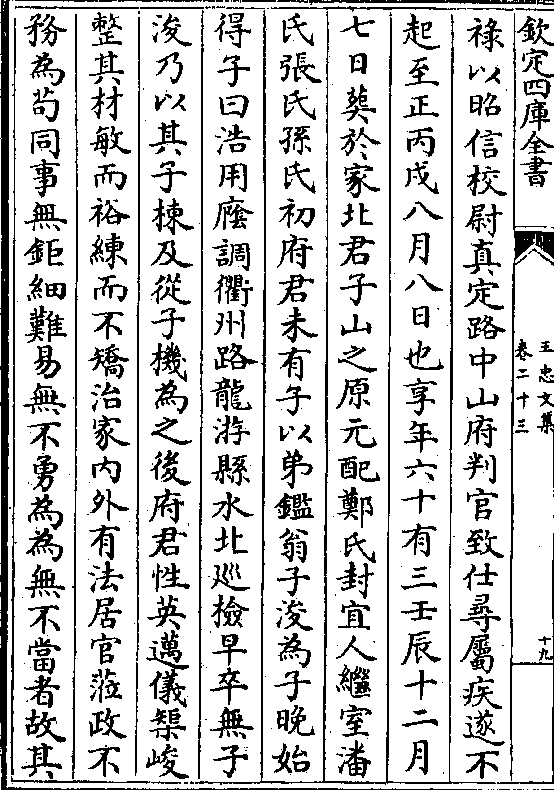 欽定四庫全書
王忠文集
卷二十三
十九
祿以昭信校尉真定路中山府判官致仕尋屬疾遂不
起至正丙戌八月八日也享年六十有三壬辰十二月
七日葬於家北君子山之原元配鄭氏封宜人繼室潘
氏張氏孫氏初府君未有子以弟鑑翁子浚為子晚始
得子曰浩用廕調衢州路龍游縣水北巡檢早卒無子
浚乃以其子棟及從子機為之後府君性英邁儀榘峻
整其材敏而裕練而不矯治家內外有法居官蒞政不
務為茍同事無鉅細難易無不勇為為無不當者故其